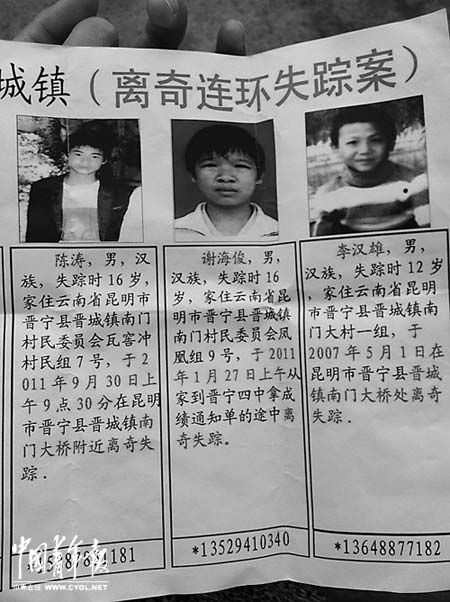 城镇（离奇连环失踪案）
陈涛，男，汉
族，失踪时16岁，
家住云南省昆明市
晋宁县晋城镇南门
村民委员会瓦窑冲
村民组7号，于2
011年9月30日上
午9点30分在昆明
市晋宁县晋城镇南
门大桥附近离奇失
踪．
谢海俊，男，
汉族，失踪时16
岁，家住云南省昆
明市晋宁县晋城镇
南门村民委员会凤
凰组9号，于2011
年1月27日上午从
家到晋宁四中拿成
绩通知单的途中离
奇失踪。
*13529410340
李汉雄，男，
汉族，失踪时12岁
，家住云南省昆明
市晋宁县晋城镇南
门大村一组，于
2007年5月1日在
昆明市晋宁县晋城
镇南门大桥处离奇
失踪．
*13648877182
中国青年报
中青在线 WWW.CYOL.NET